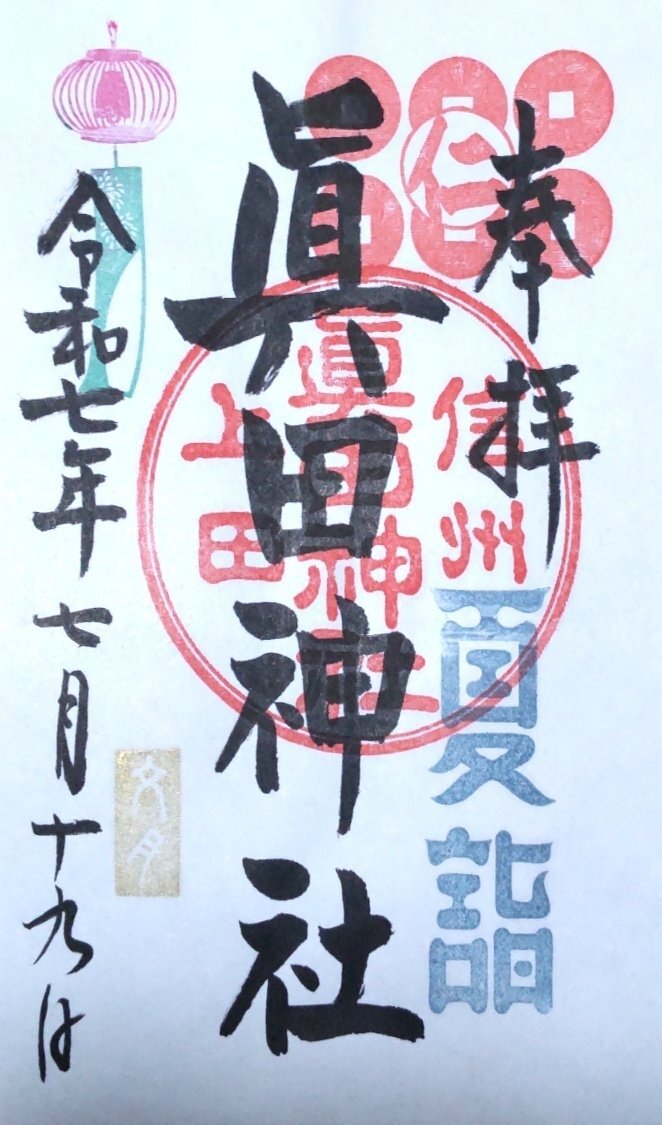 奉拝
仁
夏詣
信州
眞田神社
上田
眞田神社
令和七年七月十九日
文月